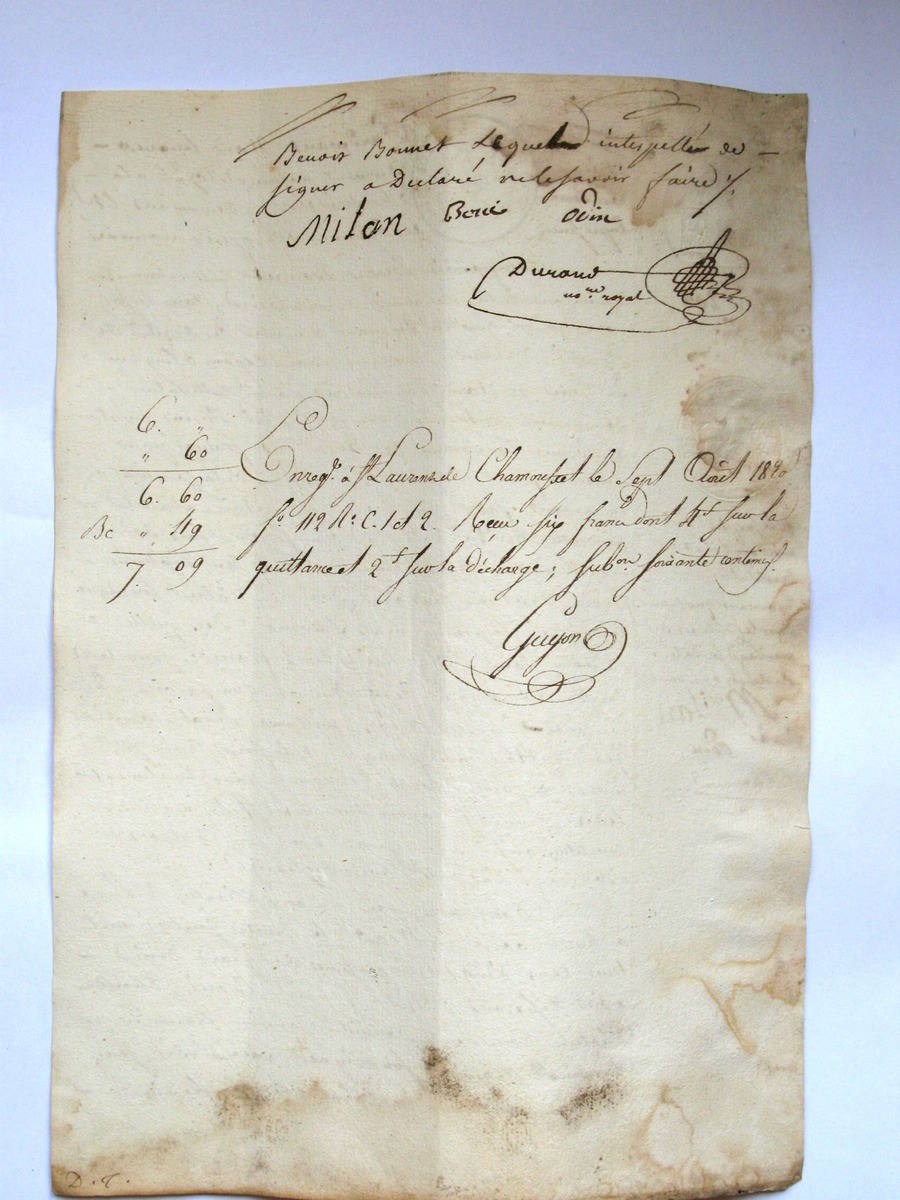 Benoit Bonnet Lequel interpellé de —
signer a Déclaré ne le savoir faire ./.
Milan Berné Odin
Durand
no.re royal
6. "
" 60
6. 60
Bc " 49
7. 09
Enregé. à St Laurent de Chamousset le Sept Août 1820
fo. 112 Ro. C. 1 et 2. Reçu six francs dont 4f sur la
quittance et 2f sur la décharge ; subon. soixante centimes
Guyon
D. T.